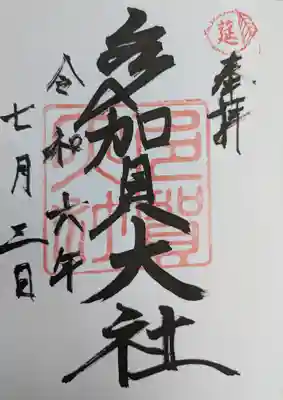 奉拝
延
多賀大社
多賀大社
令和六年
七月三日